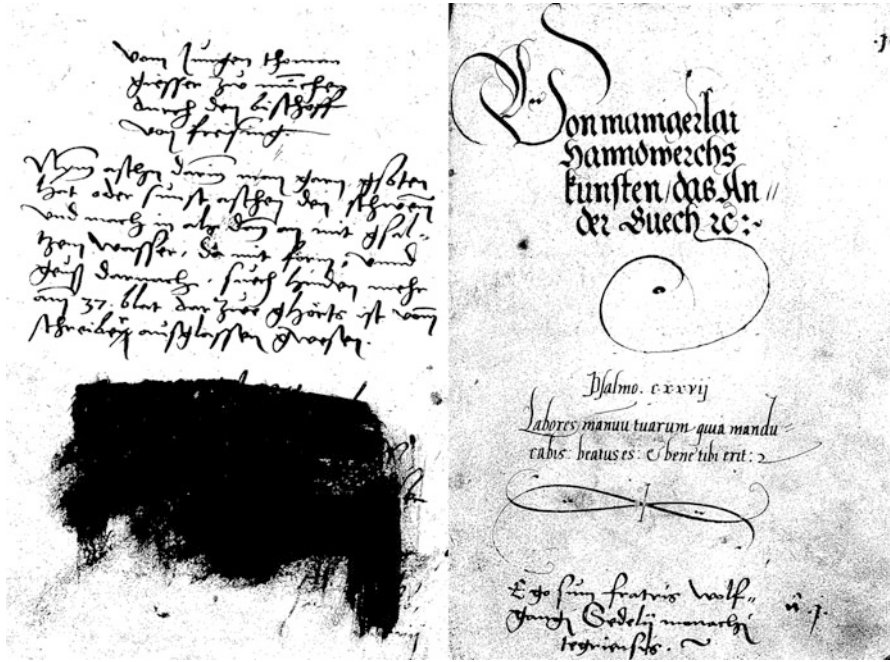 vom Jungen thoman
giesser zů münchen
durch den bischoff
von freising
Nym aschn darin man garn gsoten
hat oder sunst aschen den schwem
und mach in alz dan an mit gsal-
tzen wasser, da mit form, vnnd
geuß darnach, such hinden mehr
am 37. blat dar zue ghörts ist vom
schreiber ausglassen gwesen.
.1.
Von mainigerlai
Hanndwerchs
kunsten / das An//
der Buech ꝛc:~
Psalmo. cxxvij
Labores manuu tuarum quia mandu=
cabis: beatus es: & bene tibi erit:
Ego sum fratris wolf=
gangi Sedelij monachi
tegriensis. ~